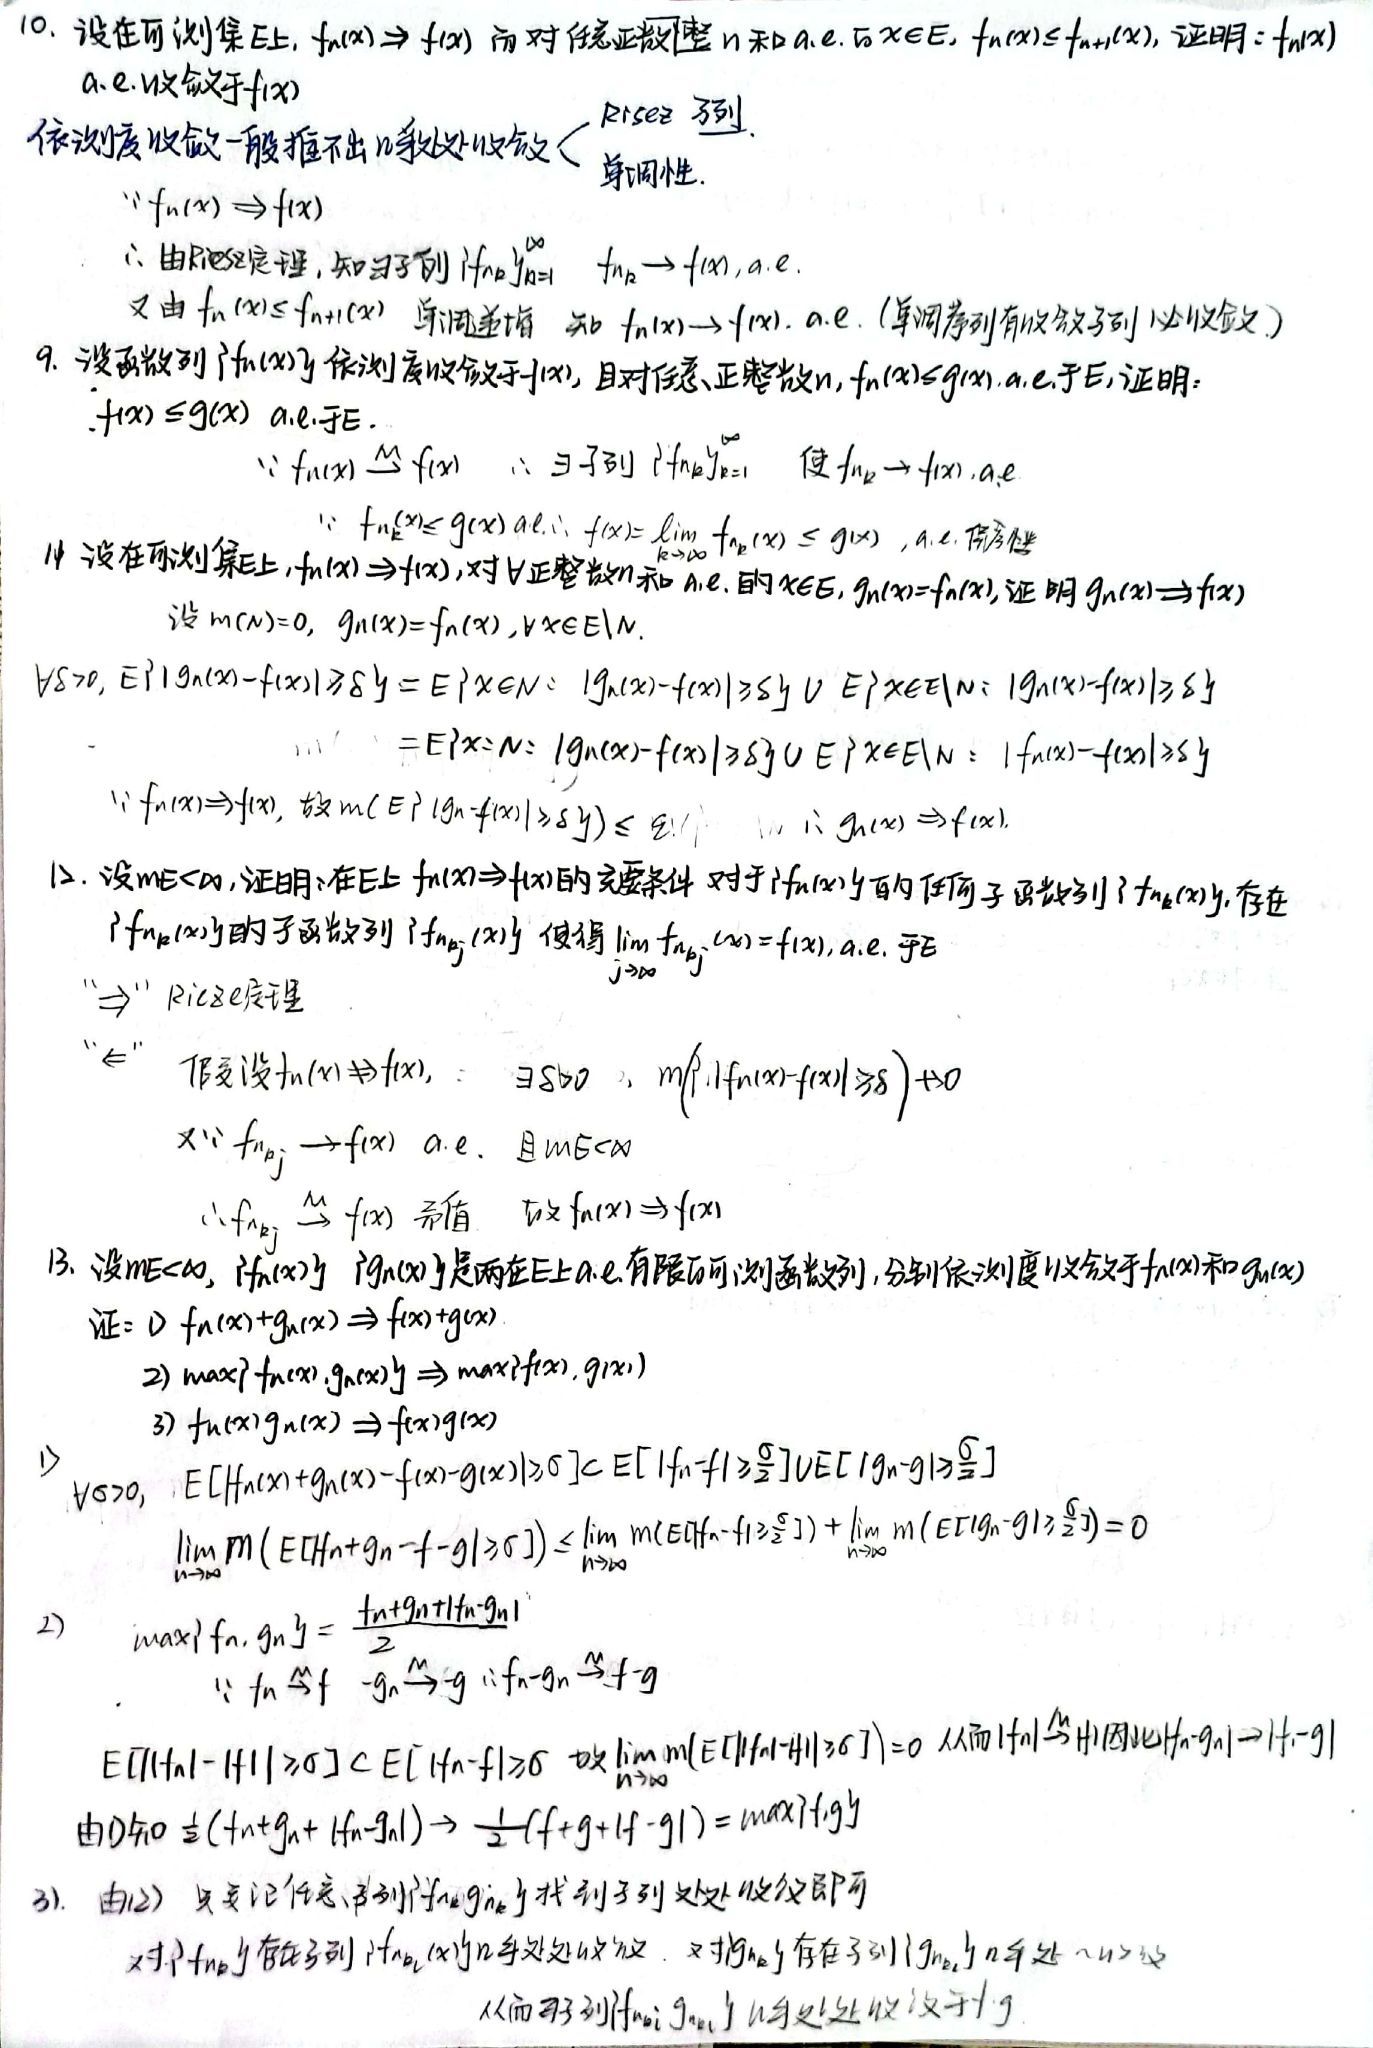 10. 设在可测集E上, fn(x)⇒f(x) 而对任意正整 n 和 a.e. 的 x∈E, fn(x)≤fn+1(x), 证明: fn(x)
a.e.收敛于f(x)
依测度收敛一般推不出几乎处处收敛< Risez 子列.
单调性.
∵ fn(x)⇒f(x)
∴ 由Riesz定理, 知∃子列{fnk}∞k=1 fnk→f(x), a.e.
又由 fn(x)≤fn+1(x) 单调递增 知 fn(x)→f(x). a.e. (单调序列有收敛子列 必收敛)
9. 设函数列{fn(x)}依测度收敛于f(x), 且对任意正整数n, fn(x)≤g(x). a.e.于E, 证明:
f(x)≤g(x) a.e.于E.
∵ fn(x) →μ f(x) ∴ ∃子列{fnk}∞k=1 使fnk→f(x), a.e
∵ fnk(x)≤g(x) a.e. ∴ f(x)=lim k→∞ fnk(x)≤g(x), a.e.
11 设在可测集E上, fn(x)⇒f(x), 对∀正整数n和 a.e. 的x∈E, gn(x)=fn(x), 证明gn(x)⇒f(x)
设 m(N)=0, gn(x)=fn(x), ∀x∈E\N.
∀δ>0, E{|gn(x)-f(x)|≥δ}=E{x∈N: |gn(x)-f(x)|≥δ}∪E{x∈E\N: |gn(x)-f(x)|≥δ}
=E{x∈N: |gn(x)-f(x)|≥δ}∪E{x∈E\N: |fn(x)-f(x)|≥δ}
∵ fn(x)⇒f(x), 故m(E{|gn-f(x)|≥δ})≤ ∴ gn(x)⇒f(x).
12. 设mE<∞, 证明:在E上 fn(x)⇒f(x)的充要条件 对于{fn(x)}的任何子函数列{fnk(x)}, 存在
{fnk(x)}的子函数列{fnkj(x)} 使得 lim j→∞ fnkj(x)=f(x), a.e. 于E
"⇒" Risze定理
"⇐" 假设fn(x)⇏f(x), ∃δ>0, m({|fn(x)-f(x)|≥δ)↛0
又∵ fnkj→f(x) a.e. 且mE<∞
∴ fnkj →μ f(x) 矛盾 故fn(x)⇒f(x)
13. 设mE<∞, {fn(x)} {gn(x)}是两在E上a.e.有限的可测函数列, 分别依测度收敛于fn(x)和gn(x)
证: 1) fn(x)+gn(x)⇒f(x)+g(x)
2) max{fn(x),gn(x)}⇒max{f(x),g(x))
3) fn(x)gn(x)⇒f(x)g(x)
1) ∀σ>0, E[|fn(x)+gn(x)-f(x)-g(x)|≥σ]⊂E[|fn-f|≥σ/2]∪E[|gn-g|≥σ/2]
lim n→∞ m(E[|fn+gn-f-g|≥σ])≤lim n→∞ m(E[|fn-f|≥σ/2])+lim n→∞ m(E[|gn-g|≥σ/2])=0
2) max{fn,gn}=fn+gn+|fn-gn|/2
∵ fn →μ f -gn →μ -g ∴ fn-gn →μ f-g
E[||fn|-|f||≥σ]⊂E[|fn-f|≥σ 故lim n→∞ m(E[||fn|-|f||≥σ])=0 从而|fn| →μ |f|因此|fn-gn|→|f-g|
由1)知 1/2(fn+gn+|fn-gn|)→1/2(f+g+|f-g|)=max{f,g}
3). 由(12) 只要证任意子列{fnk gnk}找到子列 处处收敛即可
对{fnk}存在子列{fnki(x)}几乎处处收敛. 又对{gnk}存在子列{gnki}几乎处~收敛
从而∃子列{fnki gnki}几乎处处收敛于f·g